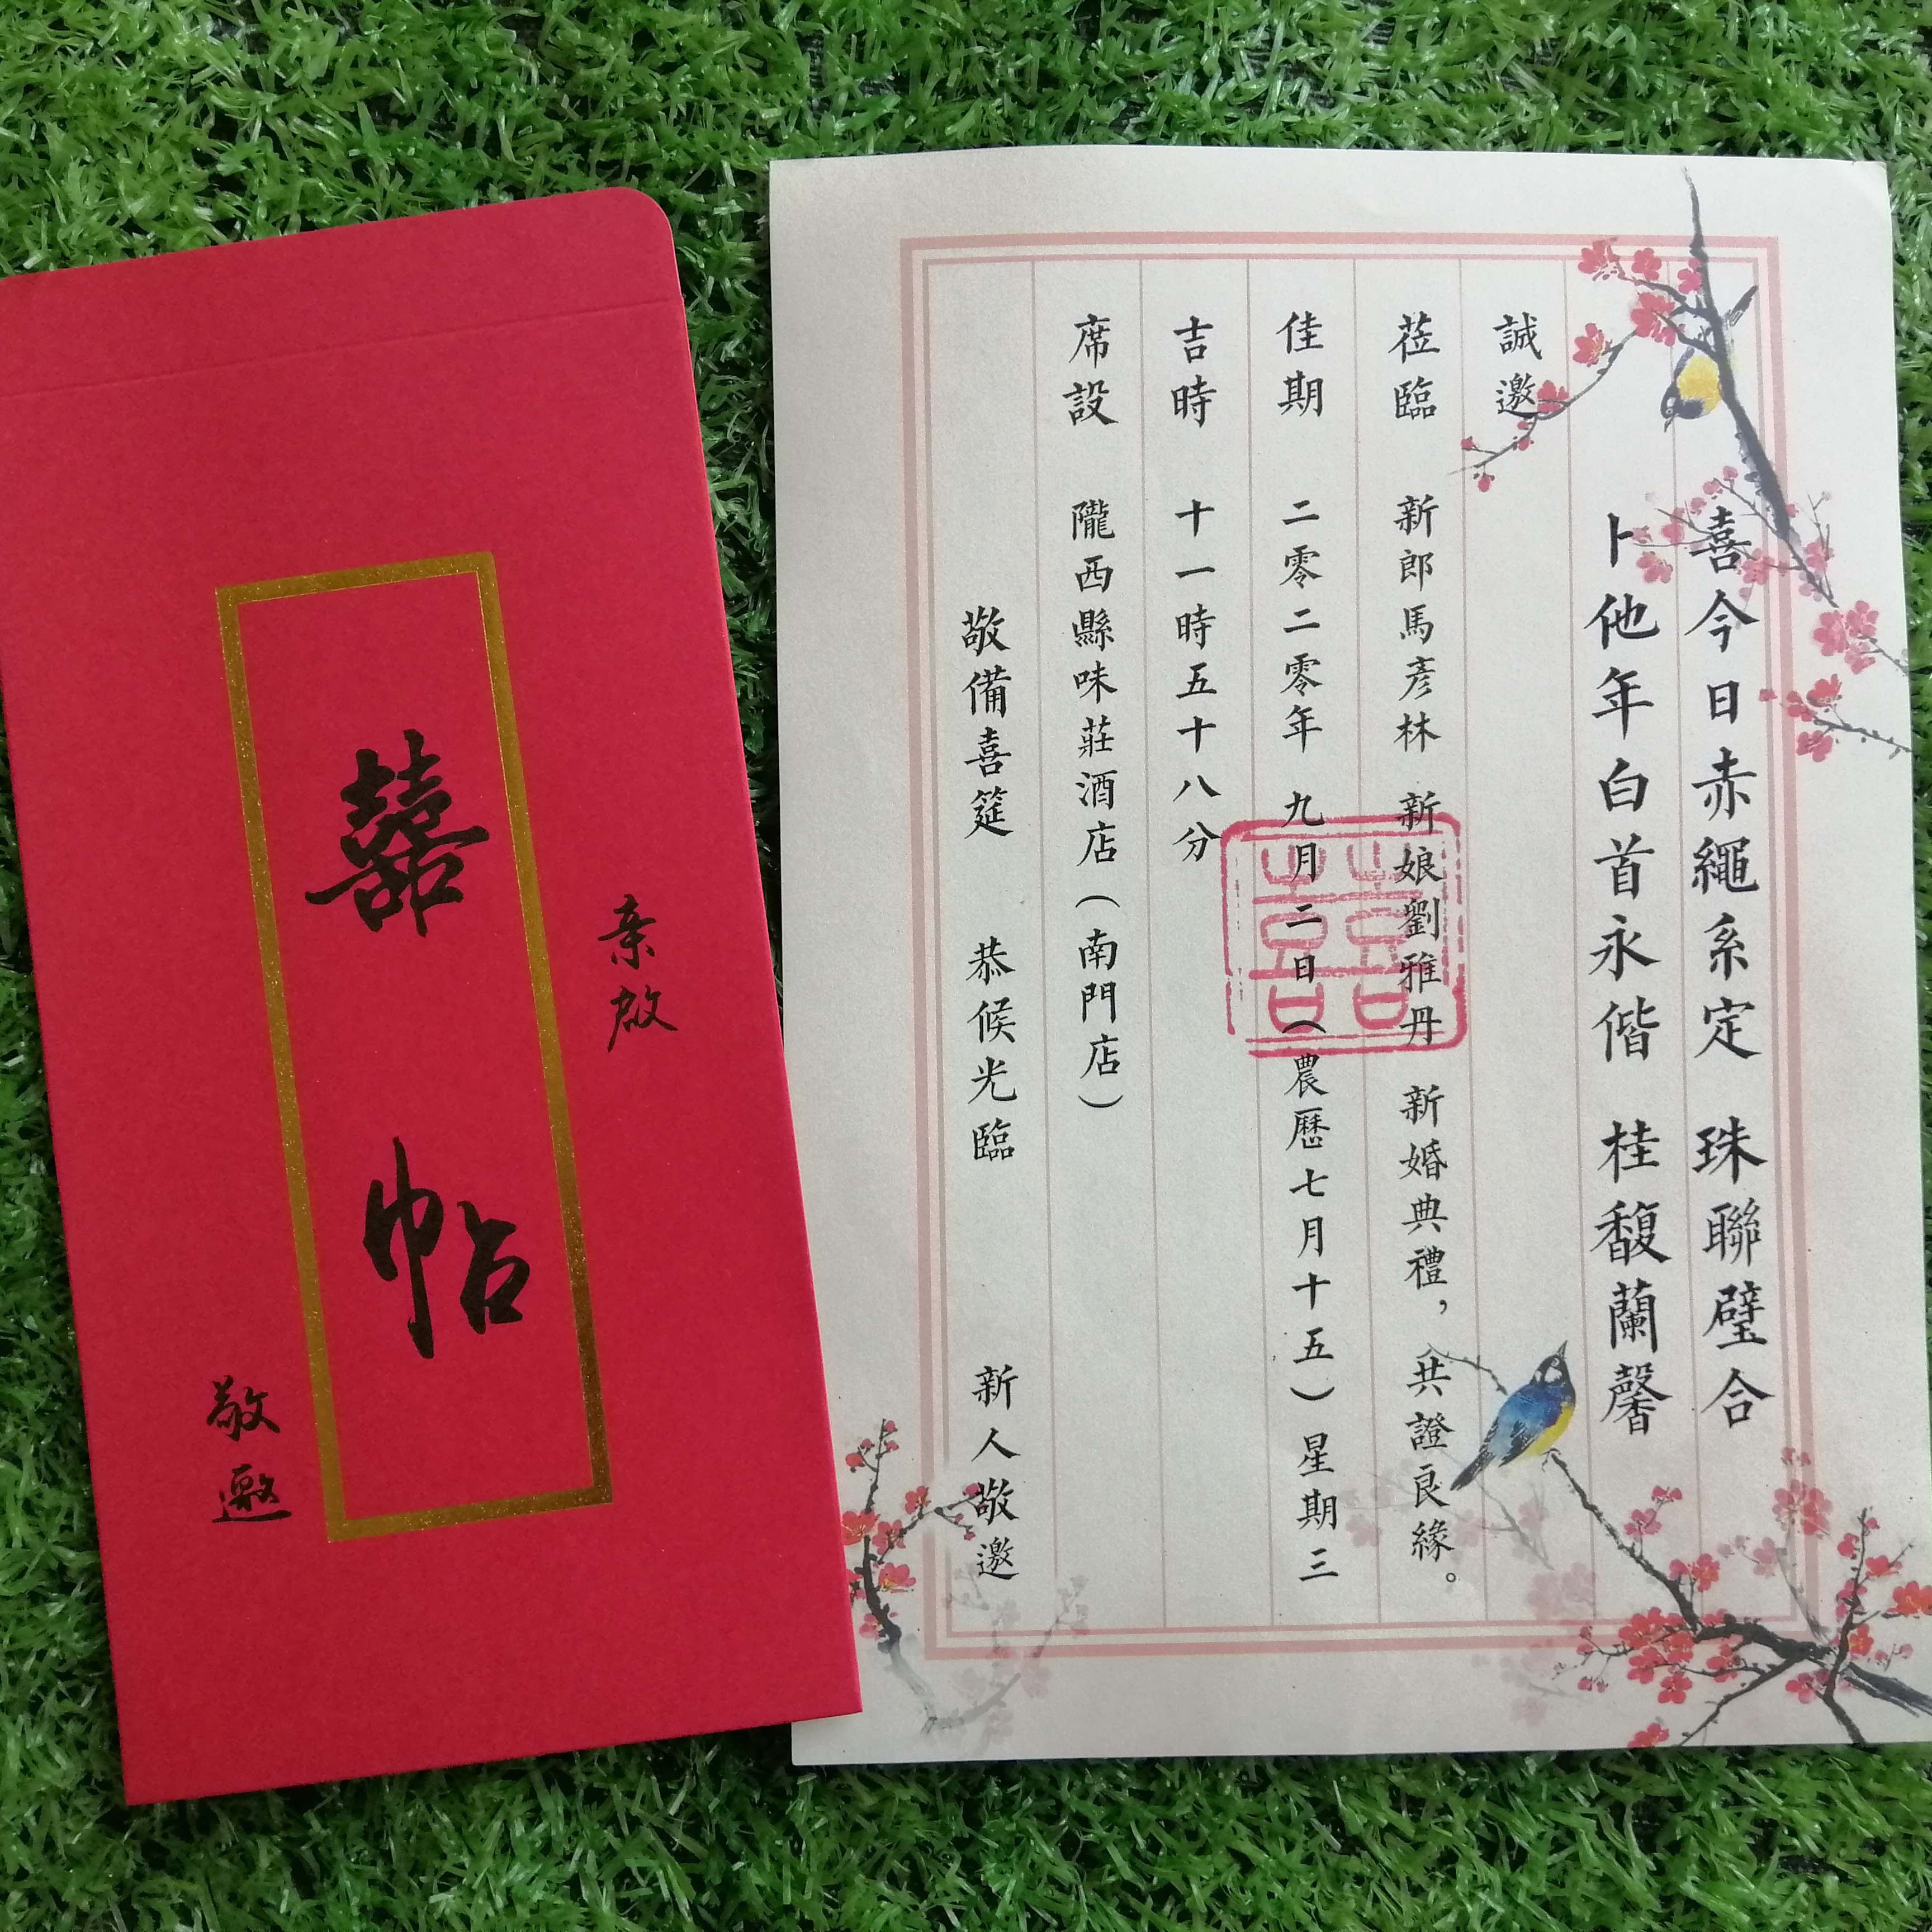 喜今日赤繩系定 珠聯璧合
卜他年白首永偕 桂馥蘭馨
誠邀
莅臨 新郎馬彥林 新娘劉雅丹 新婚典禮，共證良緣。
佳期 二零二零年 九月二日（農曆七月十五）星期三
吉時 十一時五十八分
席設 隴西縣味莊酒店（南門店）
敬備喜筵 恭候光臨 新人敬邀
囍
亲啟
囍帖
敬邀